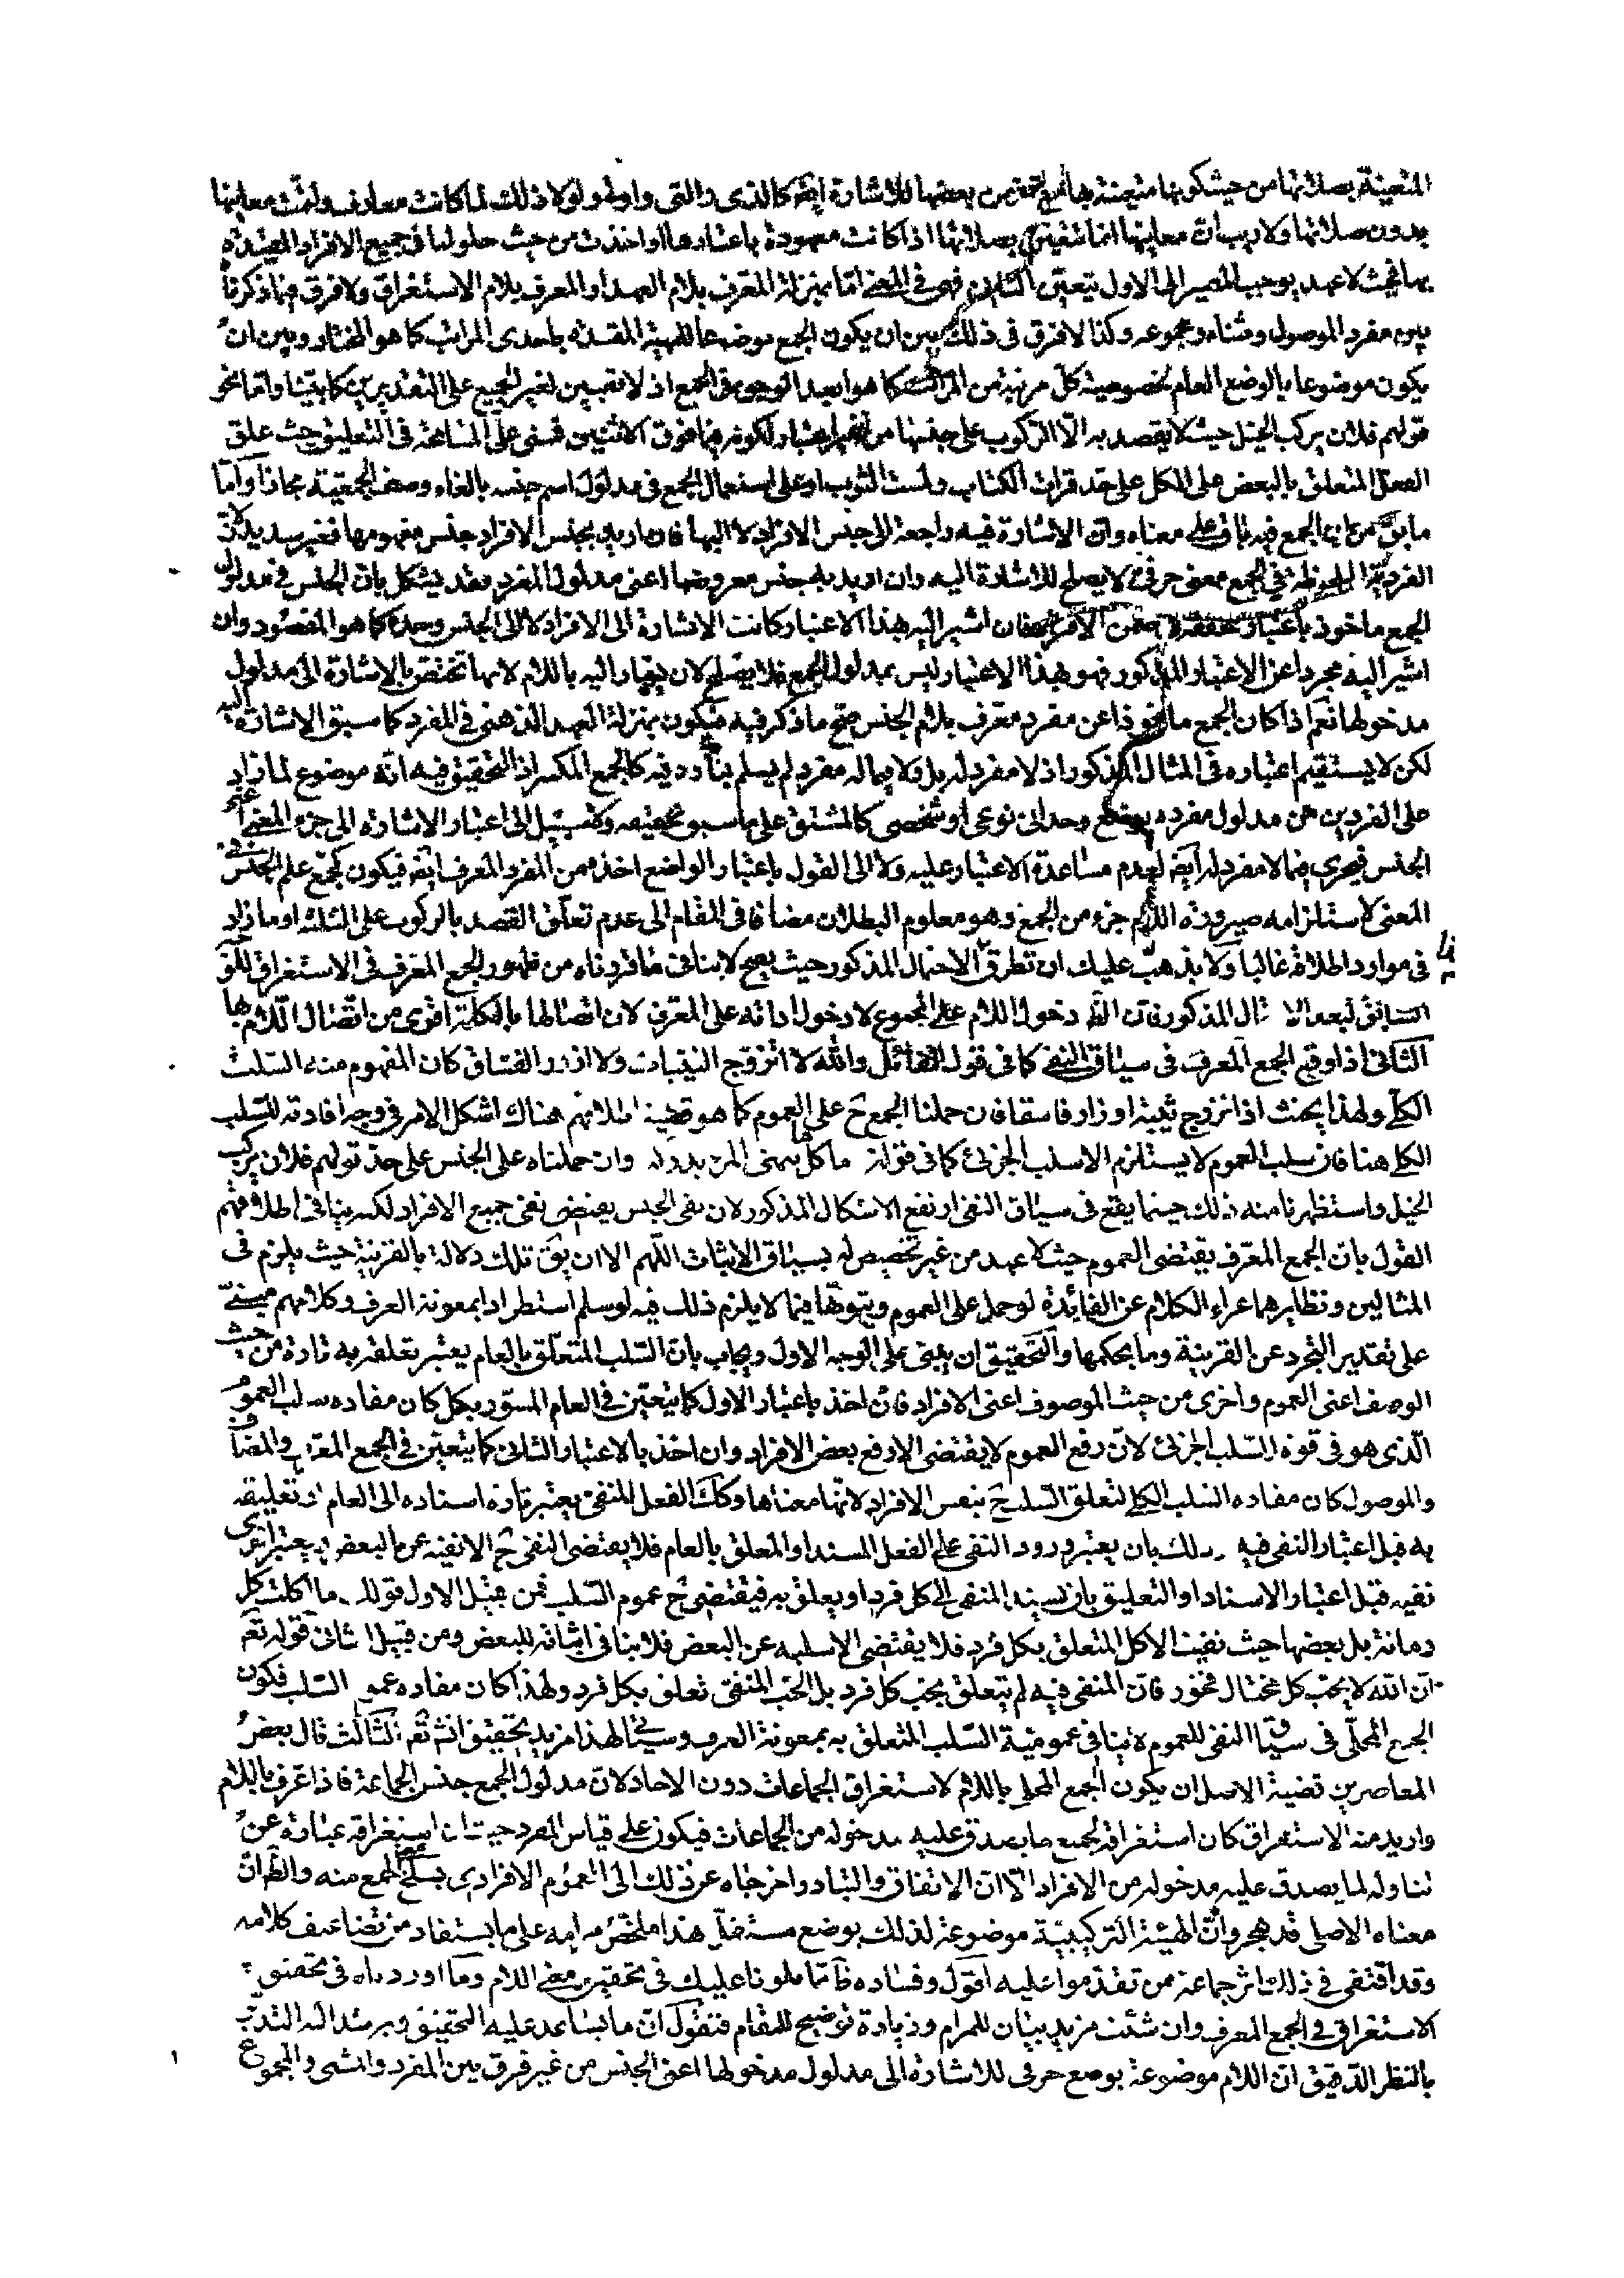 المتعينة بصلاتها من حيث كونها متعينة بها بعضها للاشارة ايضا كالذى والتى واولو ولولا ذلك لما كانت معارف ولتمت معانيها
بدون صلاتها ولا ريب ان معانيها انما تتعين بصلاتها اذا كانت معهودة باعتبارها او اخذت من حيث حلولها فى جميع الافراد المقيدة
بها فحيث لا عهد يوجب المصير الى الاول يتعين الثانى فهى فى المعنى اما بمنزلة المعرف بلام العهد او المعرف بلام الاستغراق ولا فرق فيما ذكرنا
بين مفرد الموصول ومثناه ومجموعه وكذا لا فرق فى ذلك بين ان يكون الجمع موضوعا للهيئة المقيدة باحدى المراتب كما هو المختار وبين ان
يكون موضوعا بالوضع العام لخصوصية كل مرتبة من المراتب كما هو ابعد الوجوه فى الجمع اذ لا تعيين لغير الجميع على التقديرين كما بيّنا واما نحو
قولهم فلان يركب الخيل حيث لا يقصد به الا الركوب على جنسها من غير اعتبار لكونه فيما فوق الاثنين فمبنى على المسامحة فى التعليق حيث علق
الفعل المتعلق بالبعض على الكل على حد قرات الكتاب ولمست الثوب او على استعمال الجمع فى مدلول اسم جنسه بالغاء وصف الجمعية مجازا واما
ما يق من ان الجمع فيه باق على معناه وان الاشارة فيه راجعة الى جنس الافراد لا اليها فان اريد بجنس الافراد جنس مفهومها فغير سديد لان
الفردية الملحوظة فى الجمع معنى حرفى لا يصلح للاشارة اليه وان اريد به جنس معروضها اعنى مدلول المفرد فقد يشكل بان الجنس فى مدلول
الجمع ماخوذ باعتبار تحققه فى ضمن الافراد فان اشير اليه بهذا الاعتبار كانت الاشارة الى الافراد لا الى الجنس وحده كما هو المقصود وان
اشير اليه مجردا عن الاعتبار المذكور فهو بهذا الاعتبار ليس بمدلول الجمع فلا يصلح لان يشار اليه باللام لانها تختص بالاشارة الى مدلول
مدخولها نعم اذا كان الجمع ماخوذا عن مفرد معرف بلام الجنس صح ما ذكر فيه فيكون بمنزلة العهد الذهنى فى المفرد كما سبق الاشارة اليه
لكن لا يستقيم اعتباره فى المثال المذكور اذ لا مفرد له بل ولا فيما له مفرد لم يسلم بناؤه فيه كالجمع المكسر اذ التحقيق فيه انه موضوع لما زاد
على الفردين من مدلول مفرده بوضع وحدانى نوعى او شخصى كالمشتق على ما سبق تحقيقه ولا سبيل الى اعتبار الاشارة الى جزء المعنى اعنى
الجنس فيجرى فيما لا مفرد له ايضا لعدم مساعدة الاعتبار عليه ولا الى القول باعتبار الواضع اخذه من المفرد المعرف ايضا فيكون كجمع علم الجنس فى
المعنى لاستلزامه صيرورة اللام جزء من الجمع وهو معلوم البطلان مضافا فى المقام الى عدم تعلق القصد بالركوب على الثلثة او ما زاد
فى موارد اطلاقه غالبا ولا يذهب عليك ان تطرق الاحتمال المذكور حيث يصح لا ينافى ما قررناه من ظهور الجمع المعرف فى الاستغراق
السابق لبعد المذكور فان الظ دخول اللام على المجموع لا دخول اداته على المعرف لان اتصالها بالكلمة اقوى من اتصال اللام بها
الثانى اذا وقع الجمع المعرف فى سياق النفى كما فى قول القائل والله لا اتزوج الثيبات ولا ازور الفساق كان المفهوم منه السلب
الكلى ولهذا يحنث اذا تزوج ثيبة او زار فاسقا فان حملنا الجمع ح على العموم كما هو قضية اطلاقهم هناك اشكل الامر فى وجه افادته للسلب
الكلى هنا فان سلب العموم لا يستلزم الا سلب الجزئى كما فى قوله ما كل يتمنى المرء يدركه وان حملناه على الجنس على حد قولهم فلان يركب
الخيل واستظهرنا منه ذلك حينما يقع فى سياق النفى ارتفع الاشكال المذكور لان نفى الجنس يقتضى نفى جميع الافراد لكنه ينافى اطلاقهم
القول بان الجمع المعرف يقتضى العموم حيث لا عهد من غير تخصيص له بسياق الاثبات اللهم الا ان يق تلك دلالة بالقرينة حيث يلزم فى
المثالين ونظايرهما عراء الكلام عن الفائدة لو حمل على العموم ويتوقها فيما لا يلزم ذلك فيه لو سلم استطرادا بمعونة العرف وكلامهم مبنى
على تقدير التجرد عن القرينة وما بحكمها والتحقيق ان يبنى على الوجه الاول ويجاب بان السلب المتعلق بالعام يعتبر تعلقه به تارة من حيث
الوصف اعنى العموم واخرى من حيث الموصوف اعنى الافراد فان اخذ باعتبار الاول كما يتعين فى العام المسور بكل كان مفاده سلب العموم
الذى هو فى قوة السلب الجزئى لان رفع العموم لا يقتضى الا رفع بعض الافراد وان اخذ بالاعتبار الثانى كما يتعين فى الجمع المعرف والمضاف
والموصول كان مفاده السلب الكلى لتعلق السلب ح بنفس الافراد لانها معناها وكك الفعل المنفى يعتبر تارة اسناده الى العام او تعليقه
به قبل اعتبار النفى فيه وذلك بان يعتبر ورود النفى على الفعل المسند او المعلق بالعام فلا يقتضى النفى ح الا نفيه عن البعض ويعتبر اخرى
نفيه قبل اعتبار الاسناد او التعليق بان يسند المنفى الى كل فرد او يعلق به فيقتضى ح عموم السلب فمن قبيل الاول قولك ما اكلت كل
رمانة بل بعضها حيث نفيت الاكل المتعلق بكل فرد فلا يقتضى الا سلبه عن البعض فلا ينافى اثباته للبعض ومن قبيل الثانى قوله تعم
ان الله لا يحب كل مختال فخور فان المنفى فيه لم يتعلق بحب كل فرد بل الحب المنفى تعلق بكل فرد ولهذا كان مفاده عموم السلب فكون
الجمع المحلى فى سياق النفى للعموم لا ينافى عمومية السلب المتعلق به بمعونة العرف وسيأتى لهذا مزيد تحقيق انش تعم الثالث قال بعض
المعاصرين قضية الاصل ان يكون الجمع المحلى باللام لاستغراق الجماعات دون الاحاد لان مدلول الجمع جنس الجماعة فاذا عرف باللام
واريد منه الاستغراق كان استغراقه لجميع ما يصدق عليه مدخوله من الجماعات فيكون على قياس المفرد حيث ان استغراقه عبارة عن
تناوله لما يصدق عليه مدخوله من الافراد الا ان الاتفاق والتبادر اخرجناه عن ذلك الى العموم الافرادى بسلخ الجمع منه والظ ان
معناه الاصلى قد هجر وان الهيئة التركيبية موضوعة لذلك بوضع مستقل هذا ملخص مرامه على ما يستفاد من تضاعيف كلامه
وقد اقتفى فى ذلك اثر جماعة ممن تقدموا عليه اقول وفساده ظ مما تلونا عليك فى تحقيق معنى اللام وما اوردناه فى تحقيق
الاستغراق فى الجمع المعرف وان شئت مزيد بيان للمرام وزيادة توضيح للمقام فنقول ان ما يساعد عليه التحقيق ويرشد اليه التدبر
بالنظر الدقيق ان اللام موضوعة بوضع حرفى للاشارة الى مدلول مدخولها اعنى الجنس من غير فرق بين المفرد والمثنى والمجموع